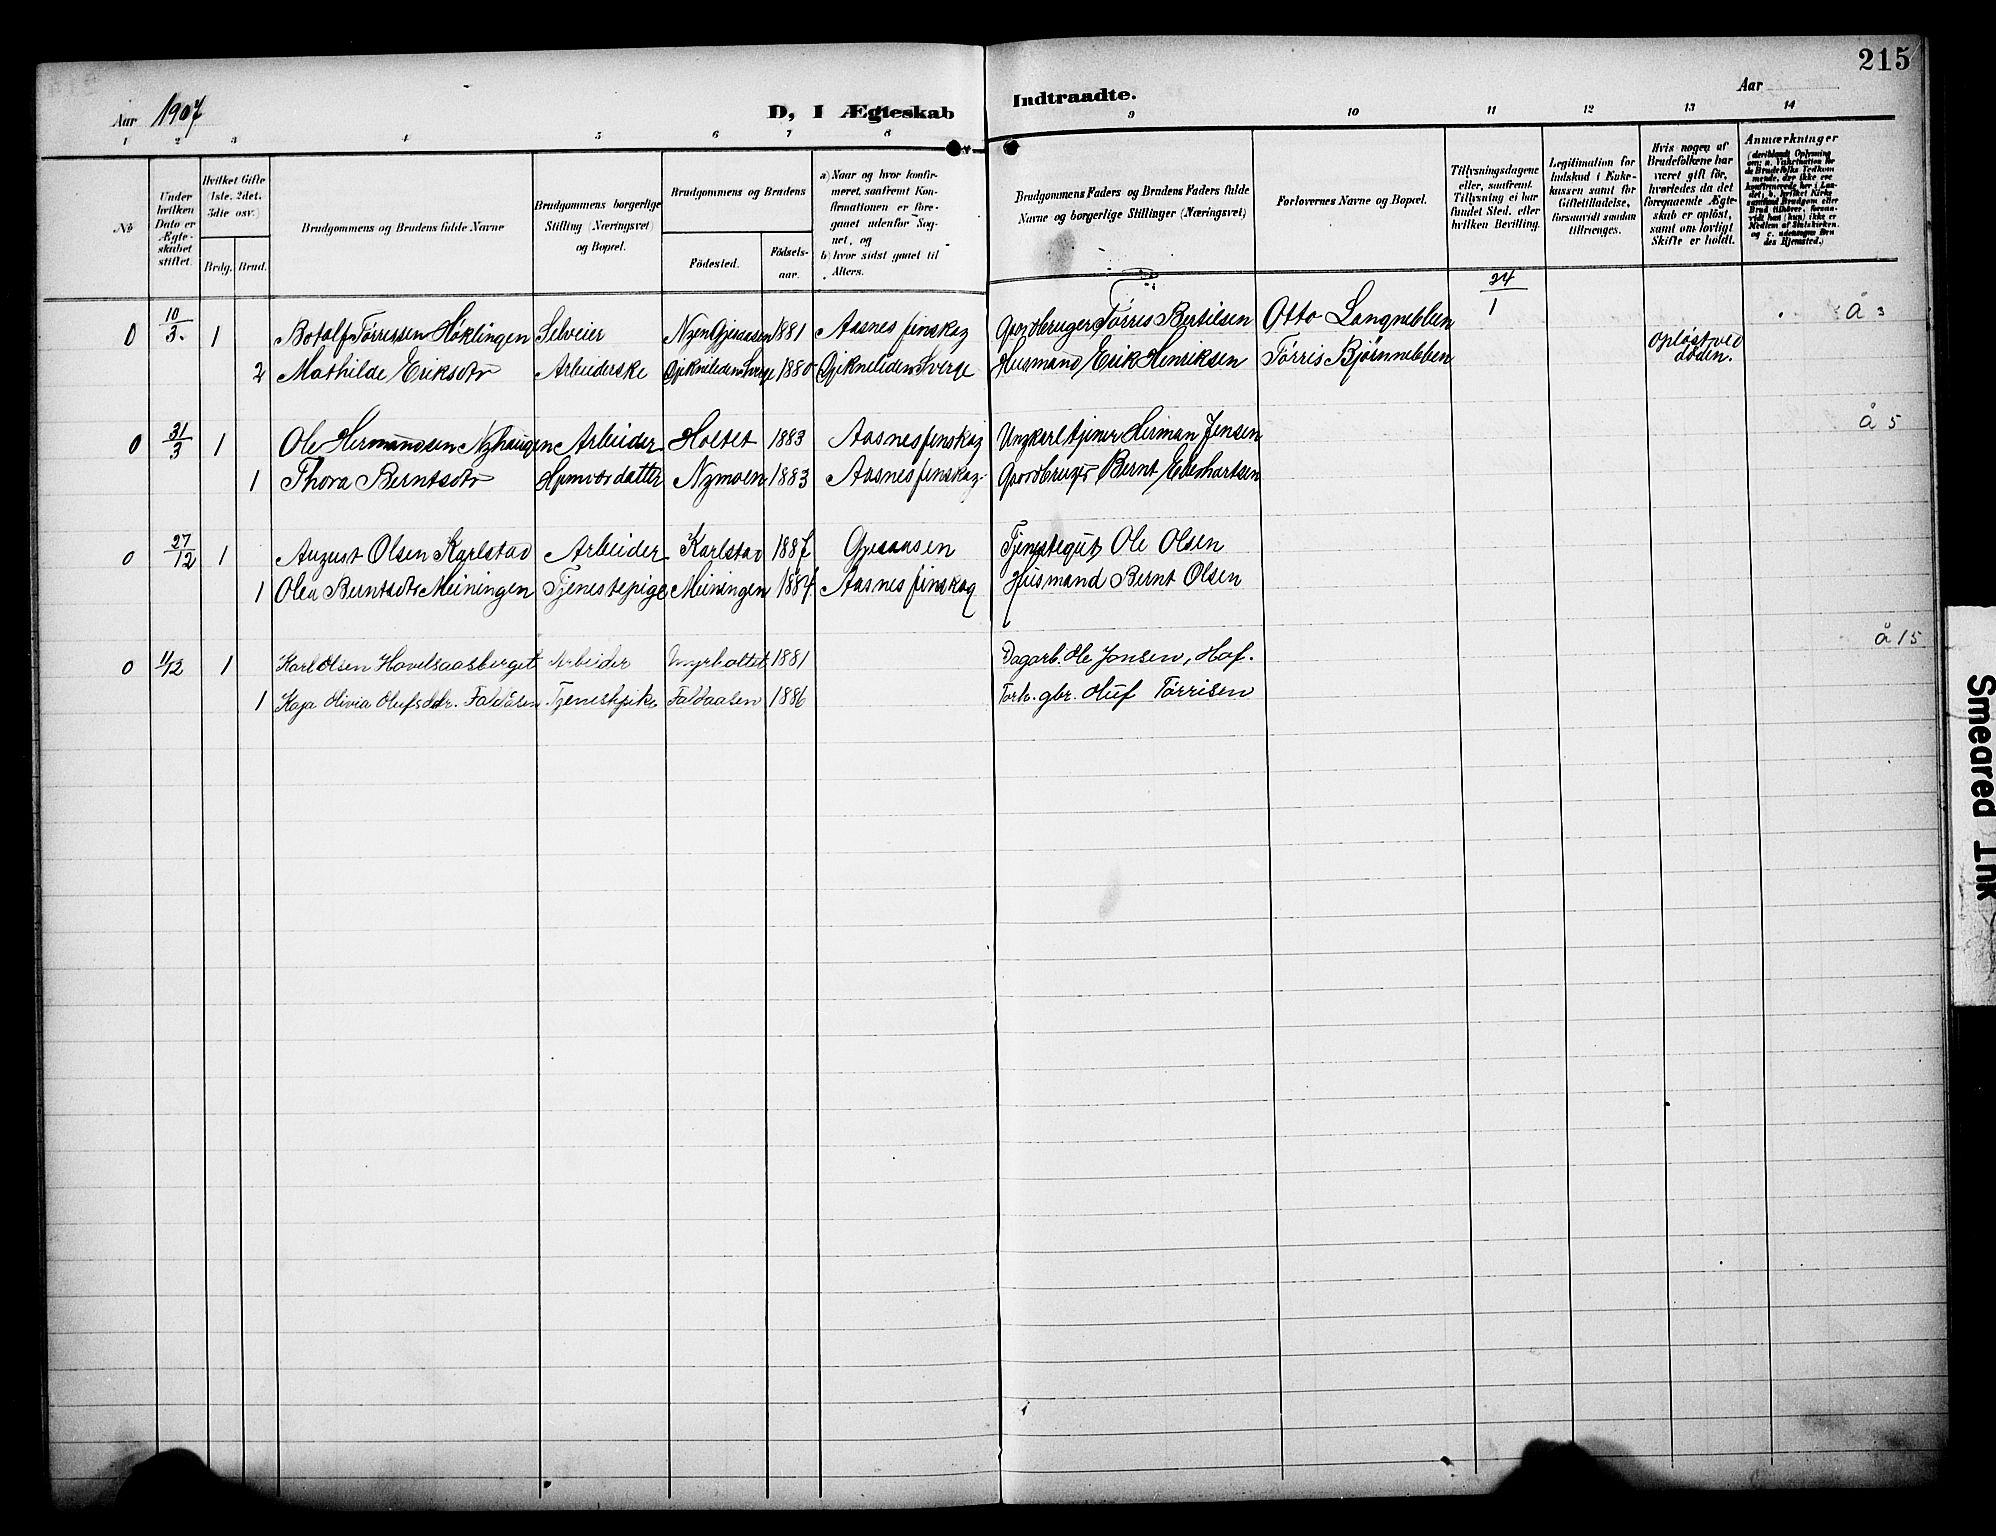 215
Aar 1907
D, I Ægteskab Indtraadte.
Aar
1 2 3 4 5 6 7 8 9 10 11 12 13 14
No
Under hvilken Dato er Ægteskabet stiftet.
Hvilket Gifte (1ste, 2det, 3die osv.)
Brdg. Brud.
Brudgommens og Brudens fulde Navne
Brudgommens borgerlige Stilling (Næringsvei) og Bopæl.
Brudgommens og Brudens
Födested.
Födselsaar.
a) Naar og hvor konfirmeret, saafremt Konfirmationen er foregaaet udenfor Sognet, og
b) hvor sidst gaaet til Alters.
Brudgommens Faders og Brudens Faders fulde Navne og borgerlige Stillinger (Næringsvei)
Forlovernes Navne og Bopæl.
Tillysningsdagene eller, saafremt Tillysning ei har fundet Sted, efter hvilken Bevilling.
Legitimation for Indskud i Enkekassen samt for Giftetilladelse, forsaavidt saadan tiltrænges.
Hvis nogen af Brudefolkene har været gift før, hvorledes da det foregaaende Ægteskab er opløst, samt om lovligt Skifte er holdt.
Anmærkninger
0 10/3. 1 Botolf Tørrissen Höklingen Selveier Nyen Gjesaasen 1881 Aasnes finskog Gaardbruger Tørris Bertilsen Otto Langnebben 24/1 Å 3
2 Mathilde Eriksdtr Arbeiderske Gjekneliden Sverge 1880 Gjekneliden Sverge Husmand Erik Henriksen Tørris Björnnebben opløst ved döden.
0 31/3 1 Ole Hermandsen Nyhaugen Arbeider Holtet 1883 Aasnes finskog Ungkarl tjener Herman Jensen Å 5
1 Thora Berntsdtr Hjemværdatter Nymoen 1883 Aasnes finskog. Gaardbruger Bernt Ekerhartsen
0 27/12 1 August Olsen Karlstad Arbeider Karlstad 1887 Gjesaasen Tjenestegut Ole Olsen
1 Olea Berntsdtr Meiningen Tjenestepige Meiningen 1884 Aasnes finskog Husmand Bernt Olsen
0 11/12 1 Karl Olsen Havelsaasberget Arbeider Myrholtet 1881 Dagarb. Ole Jonsen, Hof. Å 15
1 Kaja Olivia Olufsdtr. Faldåsen Tjenestpike Faldaasen 1886 Forh. gbr. Oluf Tørrisen
Smeared Ink